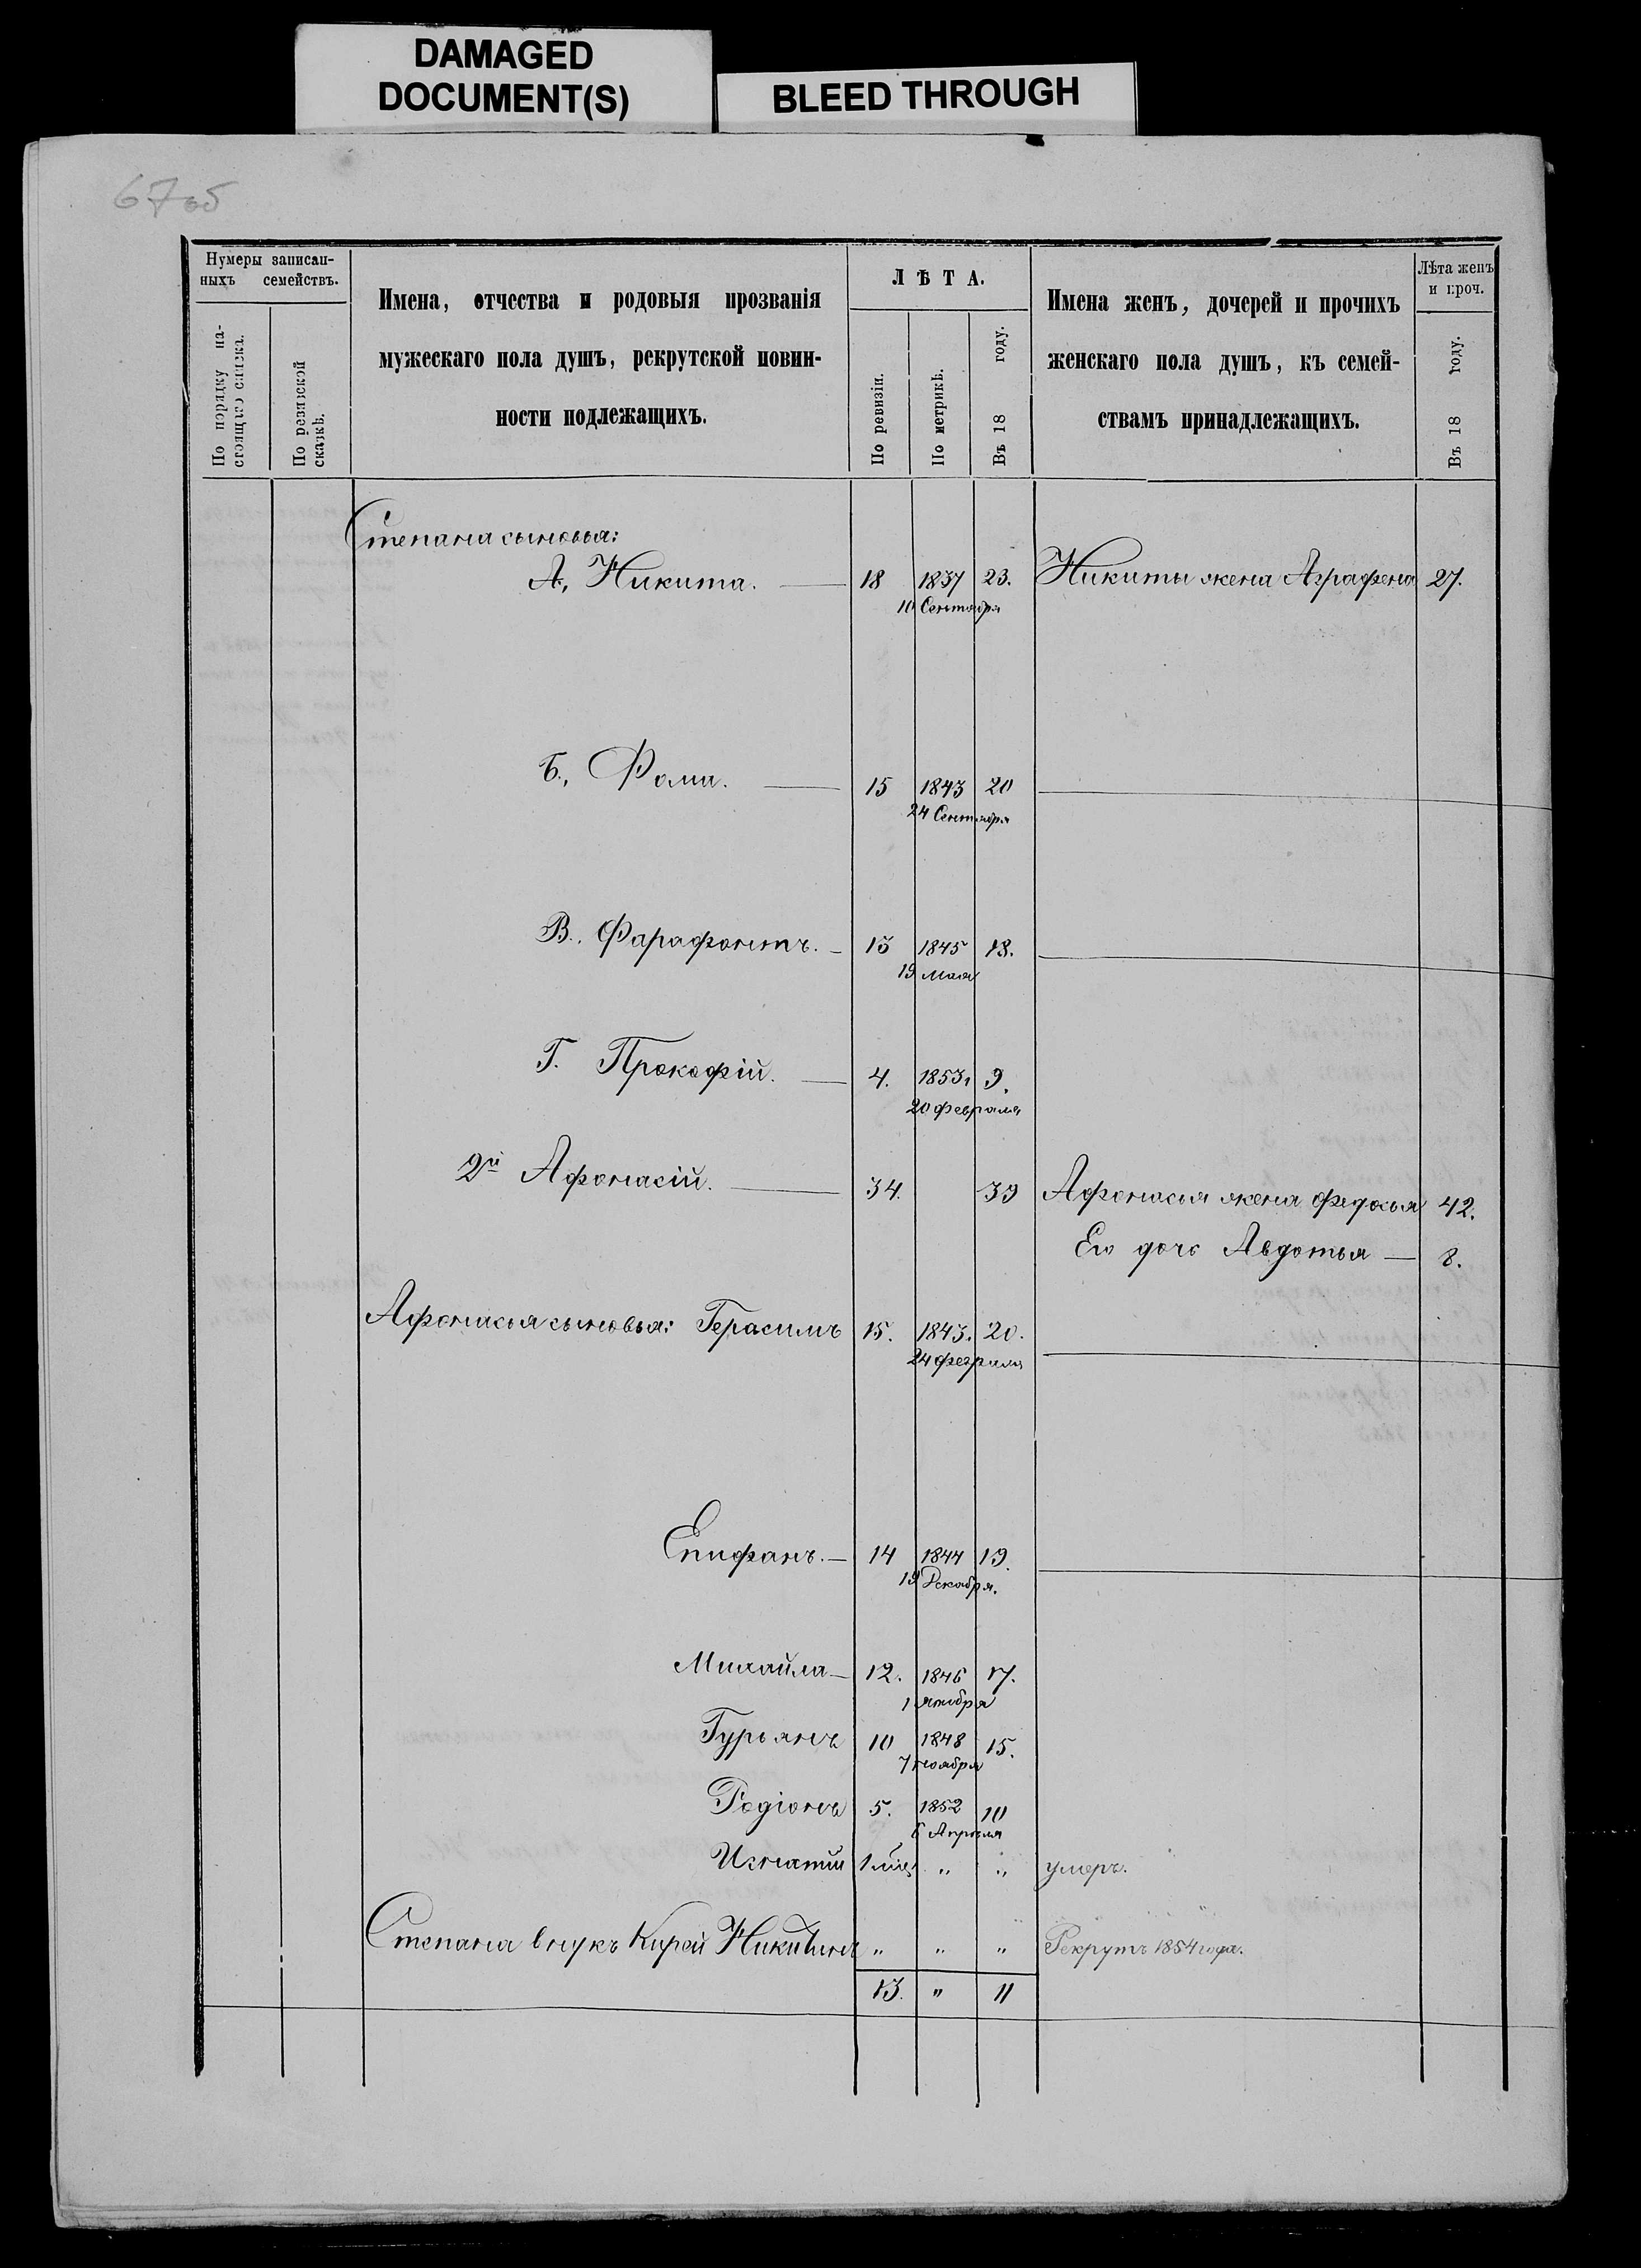 DAMAGED
DOCUMENT(S)
BLEED THROUGH
67об
Нумеры записан-
ныхъ семействъ.
По порядку на-
стоящаго списка.
По ревизской
сказкѣ.
Имена, отчества и родовыя прозванія
мужескаго пола душъ, рекрутской повин-
ности подлежащихъ.
ЛѢТА.
По ревизіи.
По метрикѣ.
Въ 18 году.
Имена женъ, дочерей и прочихъ
женскаго пола душъ, къ семей-
ствамъ принадлежащихъ.
Лѣта женъ
и проч.
Въ 18 году.
Степана сыновья:
А, Никита. — 18 1837 23. Никиты жена Аграфена 27.
10 Сентября
Б., Фома. — 15 1843 20
24 Сентября
В. Фарафонтъ. — 13 1845 18.
19 Мая
Г. Прокофій. — 4. 1853 9.
20 февраля
2й Афонасій. — 34. 39 Афонасья жена Федосья 42.
Его дочь Авдотья — 8.
Афонасья сыновья: Герасимъ 15. 1843. 20.
24 февраля
Епифанъ. — 14 1844 19.
19 Декабря.
Михайла — 12. 1846 17.
Гурьянъ 10 1848 15.
7 ноября
Родіонъ 5. 1852 10
6 Апреля
Игнатій 1 мѣс. " " умеръ.
Степана внукъ Кирей Никитинъ " " " Рекрутъ 1854 года.
13. " 11